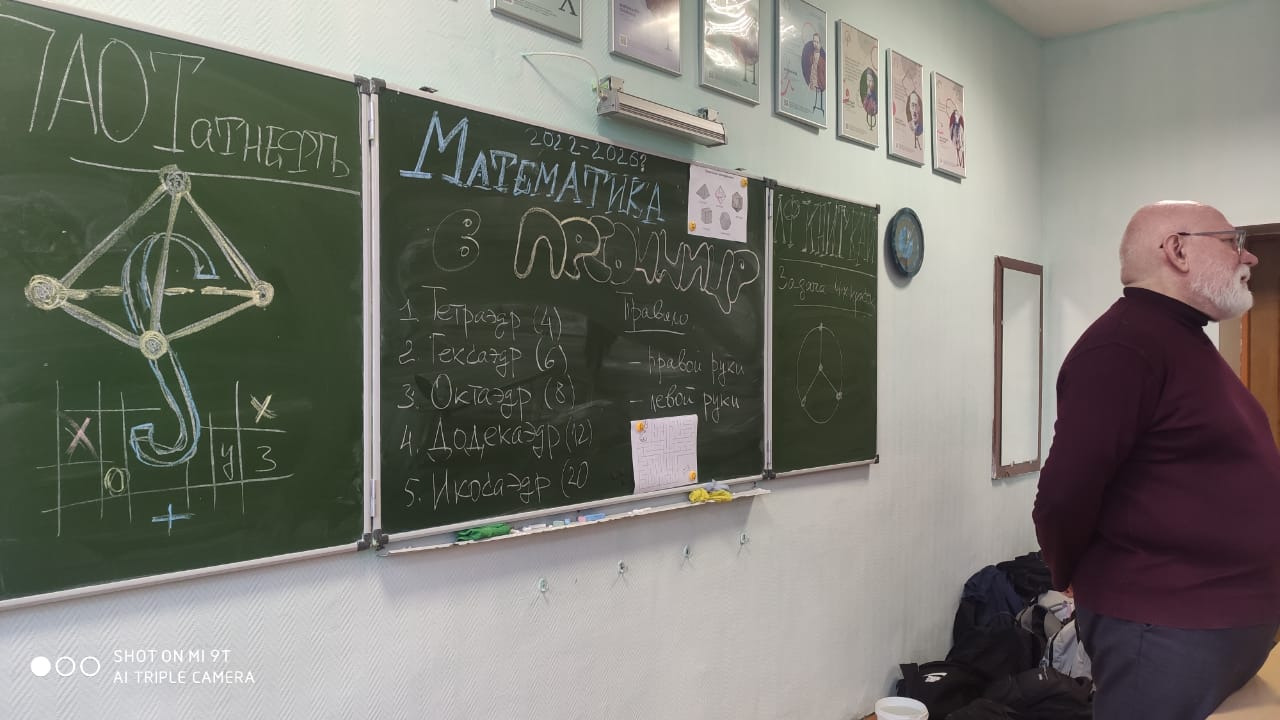 ПАО Татнефть
X
X
O
У
3
+
2022-2026?
Математика
в
Правило
1. Тетраэдр (4)
2. Гексаэдр (6)
3. Октаэдр (8)
4. Додекаэдр (12)
5. Икосаэдр (20
- правой руки
- левой руки
Задача 4-х
SHOT ON MI 9T
AI TRIPLE CAMERA